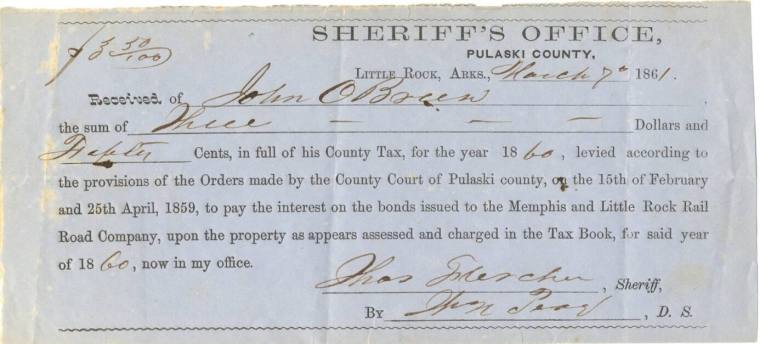 SHERIFF'S OFFICE,
$3 50/100
PULASKI COUNTY,
LITTLE ROCK, ARKS., March 7th 1861.
Received of John O Brien
the sum of Three — — — Dollars and
Fifty Cents, in full of his County Tax, for the year 1860, levied according to
the provisions of the Orders made by the County Court of Pulaski county, on the 15th of February
and 25th April, 1859, to pay the interest on the bonds issued to the Memphis and Little Rock Rail
Road Company, upon the property as appears assessed and charged in the Tax Book, for said year
of 1860, now in my office.
Thos Fletcher, Sheriff,
By Wm , D. S.